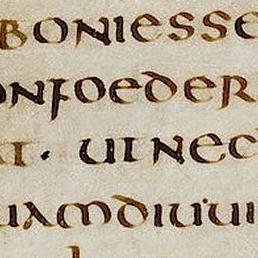 BONIESSE
ONFOEDER
AT · UTNEC
UAMDIUUI